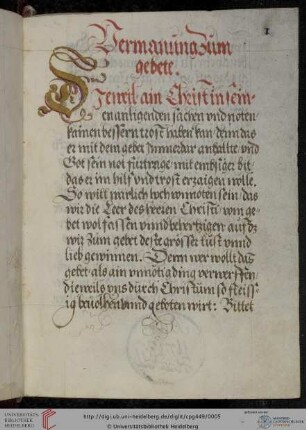 1
Vermanung zum
gebett.
Dieweil ain Christ in sein-
en anligenden sachen vnd nöten
kainen bessern trost haben kan denn das
er mit dem gebet immerdar anhalte vnd
Got sein not fürtrage mit embsiger bit
das er im hilf vnd trost erzaigen wolle.
So will warlich hoch vonnöten sein das
wir die Leer des herren Christi vom ge-
bet wol fassen vnnd behertzigen auf dz
wir zum gebet deste grösser lust vnnd
lieb gewinnen. Denn wer wollt das
gebet als ain vnnötig ding verwerffen
dieweils vns durch Christum so fleiss-
ig beuolhen vnnd geboten wirt: Bittet
UNIVERSITÄTS-
BIBLIOTHEK
HEIDELBERG
http://digi.ub.uni-heidelberg.de/diglit/cpg449/0005
© Universitätsbibliothek Heidelberg